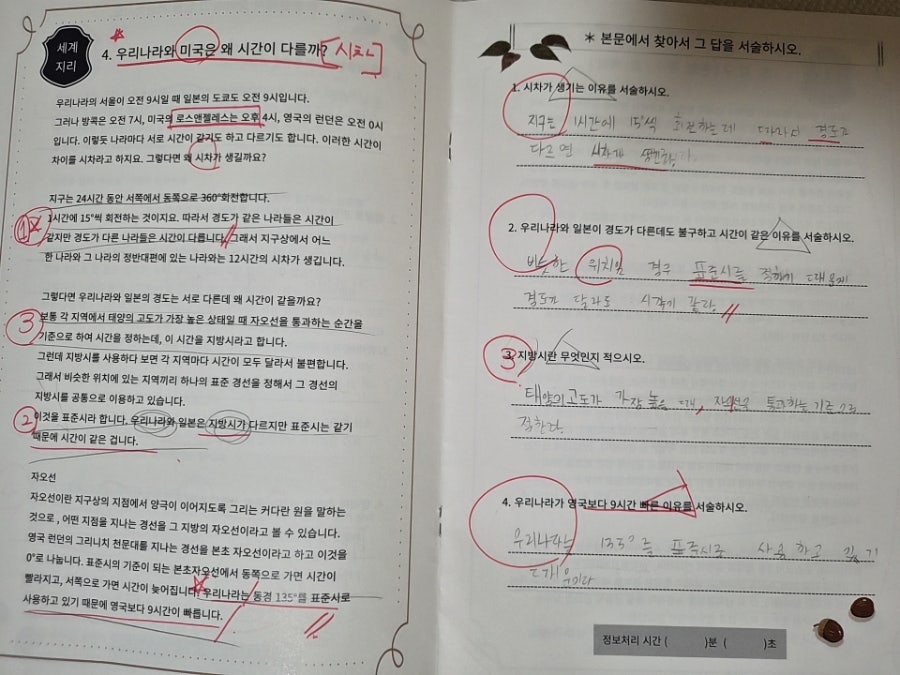 세계
지리
4. 우리나라와 미국은 왜 시간이 다를까? [시차]
우리나라의 서울이 오전 9시일 때 일본의 도쿄도 오전 9시입니다.
그러나 방콕은 오전 7시, 미국의 로스앤젤레스는 오후 4시, 영국의 런던은 오전 0시
입니다. 이렇듯 나라마다 서로 시간이 같기도 하고 다르기도 합니다. 이러한 시간이
차이를 시차라고 하지요. 그렇다면 왜 시차가 생길까요?
지구는 24시간 동안 서쪽에서 동쪽으로 360°회전합니다.
1 1시간에 15°씩 회전하는 것이지요. 따라서 경도가 같은 나라들은 시간이
같지만 경도가 다른 나라들은 시간이 다릅니다. 그래서 지구상에서 어느
한 나라와 그 나라의 정반대편에 있는 나라와는 12시간의 시차가 생깁니다.
그렇다면 우리나라와 일본의 경도는 서로 다른데 왜 시간이 같을까요?
3 보통 각 지역에서 태양의 고도가 가장 높은 상태일 때 자오선을 통과하는 순간을
기준으로 하여 시간을 정하는데, 이 시간을 지방시라고 합니다.
그런데 지방시를 사용하다 보면 각 지역마다 시간이 모두 달라서 불편합니다.
그래서 비슷한 위치에 있는 지역끼리 하나의 표준 경선을 정해서 그 경선의
지방시를 공통으로 이용하고 있습니다.
2 이것을 표준시라 합니다. 우리나라와 일본은 지방시가 다르지만 표준시는 같기
때문에 시간이 같은 겁니다.
자오선
자오선이란 지구상의 지점에서 양극이 이어지도록 그리는 커다란 원을 말하는
것으로, 어떤 지점을 지나는 경선을 그 지방의 자오선이라고 볼 수 있습니다.
영국 런던의 그리니치 천문대를 지나는 경선을 본초 자오선이라고 하고 이것을
0°로 나눕니다. 표준시의 기준이 되는 본초자오선에서 동쪽으로 가면 시간이
빨라지고, 서쪽으로 가면 시간이 늦어집니다. 우리나라는 동경 135°를 표준시로
사용하고 있기 때문에 영국보다 9시간이 빠릅니다.
* 본문에서 찾아서 그 답을 서술하시오.
1. 시차가 생기는 이유를 서술하시오.
지구는 1시간에 15°씩 회전하는데 따라서 경도가
다르면 시차가 생긴다.
2. 우리나라와 일본이 경도가 다른데도 불구하고 시간이 같은 이유를 서술하시오.
비슷한 위치일 경우 표준시를 정하기 때문에
경도가 달라도 시각이 같다.
3. 지방시란 무엇인지 적으시오.
태양의고도가 가장 높을 때, 자오선을 통과하는 기준으로
정한다.
4. 우리나라가 영국보다 9시간 빠른 이유를 서술하시오.
우리나라는 135°를 표준시로 사용하고 있기
때
정보처리 시간 ( )분 ( )초